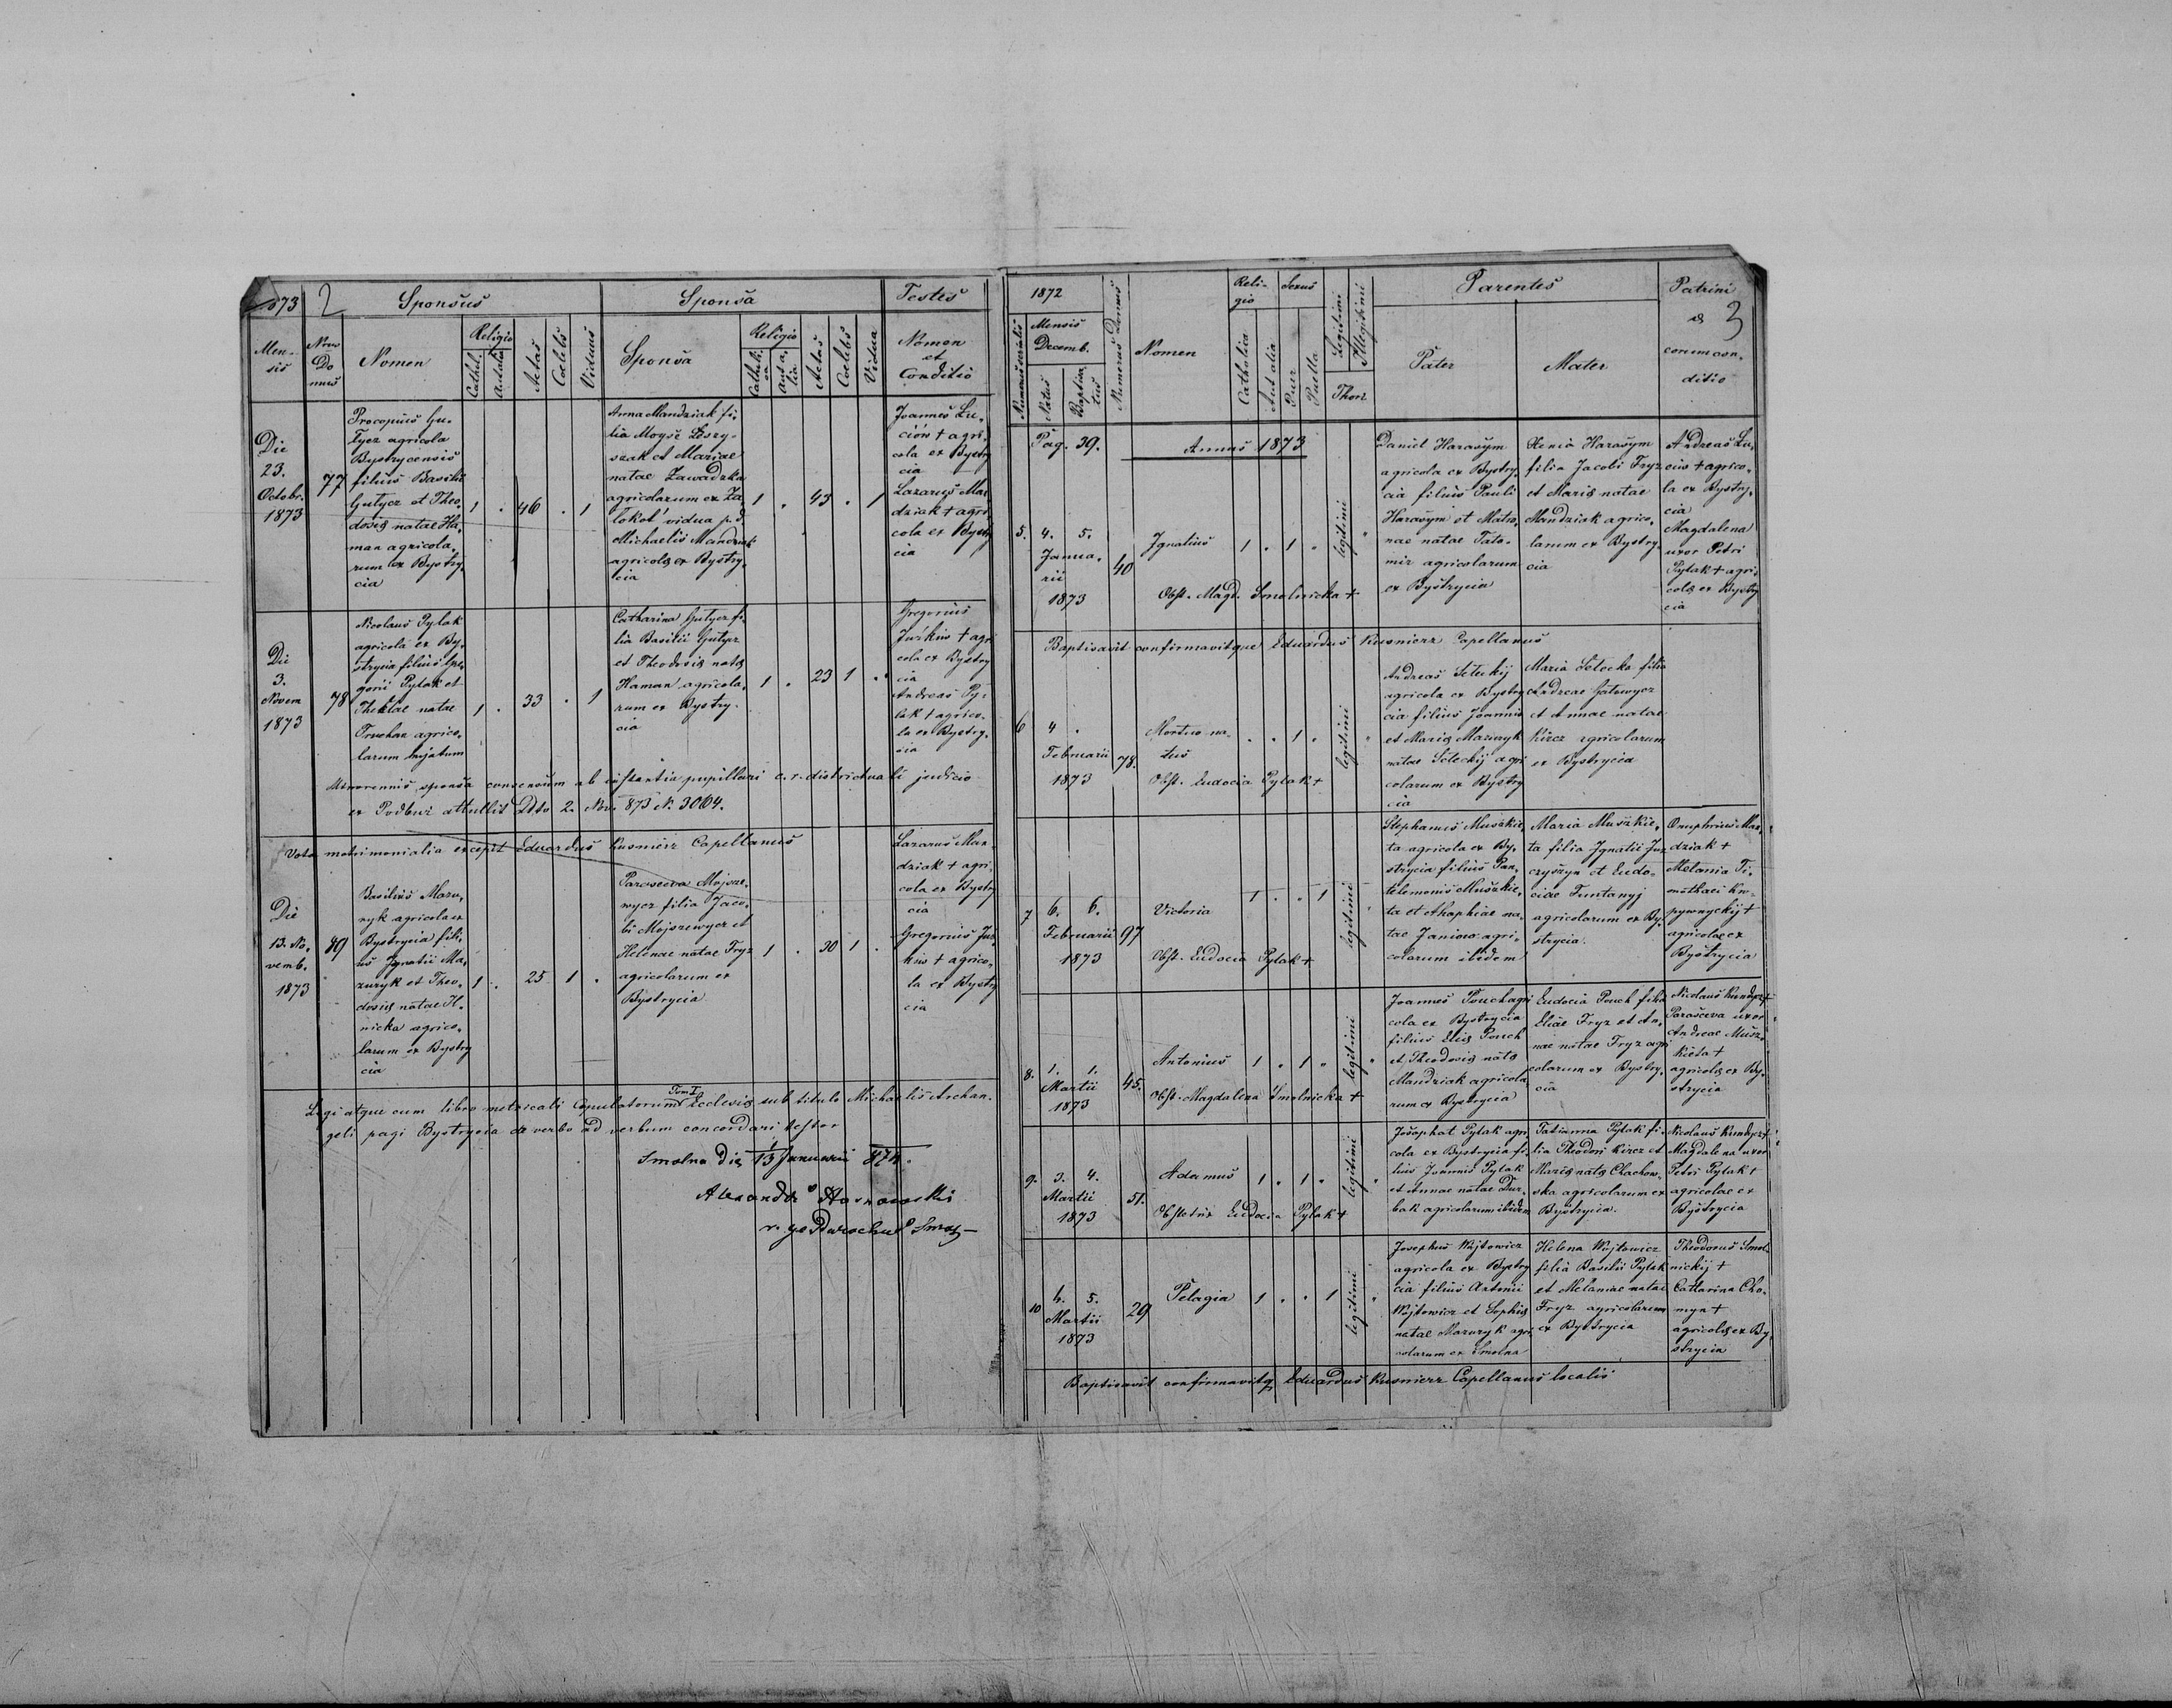 1873 2 Sponsus Sponsa Testes
Mensis Nrus Domus Nomen Religio Cathol. Aut alia Aetas Coelebs Viduus Sponsa Religio Catholica aut alia Aetas Coelebs Vidua Nomen et Conditio
Die
23.
Octobr.
1873
77
Procopius Gu-
tycz agricola
Bystrycensis
filius Basilii
Gutycz et Theo-
dosię natae Ha-
man agricola-
rum ex Bystry-
cia
1 . 46 . 1
Anna Mandziak fi-
lia Moysě Leszy-
szak et Mariae
natae Zawadzka
agricolarum ex Za-
lokoť vidua p. d.
Michaelis Mandziak
agricolę ex Bystry-
cia
1 . 43 . 1
Joannes Lu-
ciów + agri-
cola ex Bystry
cia
Lazarus Man
dziak + agri-
cola ex Bystry
cia
Die
3.
Novem
1873
78
Nicolaus Pytak
agricola ex By-
strycia filius Gre-
gorii Pytak et
Theklae natae
Truchan agrico-
larum hujatum
1 . 33 . 1
Catharina Gutycz fi-
lia Basilii Gutycz
et Theodosię natę
Haman agricola-
rum ex Bystry-
cia
1 . 23 1 .
Gregorius
Jurkiw + agri
cola ex Bystry
cia
Andreas Py-
tak + agrico-
la ex Bystry-
cia
Minorennis sponsa consensum ab instantia pupillari c. r. districtuali judicio
ex Podbuż attullit Ddto 2. Nov. 873 N. 3064.
Vota matrimonialia excepit Eduardus Kusnierz Capellanus
Die
13. No-
vemb.
1873
89
Basilius Mazu-
ryk agricola ex
Bystrycia fili-
us Ignatii Ma-
zuryk et Theo-
dosię natae Il-
nicka agrico-
larum ex Bystry
cia
1 . 25 1 .
Parasceva Mojsze-
wycz filia Jaco-
bi Mojszewycz et
Helenae natae Fryz
agricolarum ex
Bystrycia
1 . 30 1 .
Lazarus Man-
dziak + agri-
cola ex Bystry
cia
Gregorius Jur-
kiw + agrico-
la ex Bystry
cia
Legi atque cum libro metricali Copulatorum Tom I Ecclesię sub titulo Michaelis Archan-
geli pagi Bystrycia de verbo ad verbum concordari testor
Smolna die 13 Januarii 874.
Parochus
1872 Numerus Domus Nomen Religio Sexus Legitimi Illegitimi Parentes Patrini 3
Mensis Decemb. Natus Baptisatus Catholica Aut alia Puer Puella Thori Pater Mater & eorum conditio
Pag. 39. Annus 1873
5. 4. 5.
Janua-
rii
1873
40
Ignatius 1 . 1 . legitimi
Obst. Magd. Smolnicka +
Daniel Harasym
agricola ex Bystry-
cia filius Pauli
Harasym et Matro-
nae natae Tato-
mir agricolarum
ex Bystrycia
Xenia Harasym
filia Jacobi Fryz
et Marię natae
Mandziak agrico-
larum ex Bystry-
cia
Andreas Lu-
ciw + agrico-
la ex Bystry-
cia
Magdalena
uxor Petri
Pytak + agri-
colę ex Bystry
cia
Baptisavit confirmavitque Eduardus Kusnierz Capellanus
6 4 .
Februarii
1873
78.
Mortuo na-
tus . . 1 . legitimi
Obst. Eudocia Pytak +
Andreas Seteckij
agricola ex Bystry
cia filius Joannis
et Marię Mazuryk
natae Seteckij agri
colarum ex Bystry
cia
Maria Setecka filia
Andreae Gatowycz
et Annae natae
Kircz agricolarum
ex Bystrycia
7 6. 6.
Februarii
1873
97
Victoria 1 . . 1 legitimi
Obst. Eudocia Pytak +
Stephanus Muszkie-
ta agricola ex By-
strycia filius Pan-
telemonis Muszkie-
ta et Ahaphiae na-
tae Janiow agri-
colarum ibidem
Maria Muszkie-
ta filia Ignatii Ju-
czyszyn et Eudo-
ciae Funtanyj
agricolarum ex By-
strycia.
Onuphrius Man-
dziak +
Melania Ti-
mothaei Kro-
pywnyckij +
agricolae ex
Bystrycia
8. 1. 1.
Martii
1873
45.
Antonius 1 . 1 . legitimi
Obst. Magdalena Smolnicka +
Joannes Pouch agri
cola ex Bystrycia
filius Elię Pouch
et Theodosię natę
Mandziak agricola
rum ex Bystrycia
Eudocia Pouch filia
Eliae Fryz et An-
nae natae Fryz agri
colarum ex Bystry-
cia
Nicolaus Kundys +
Parasceva uxor
Andreae Musz-
kieta +
agricolę ex By-
strycia
9. 3. 4.
Martii
1873
51.
Adamus 1 . 1 . legitimi
Obstetrix Eudocia Pytak +
Josaphat Pytak agri
cola ex Bystrycia fi-
lius Joannis Pytak
et Annae natae Dur-
bak agricolarum ibidem
Tatianna Pytak fi-
lia Theodori Kircz et
Marię natę Chachow-
ska agricolarum ex
Bystrycia.
Nicolaus Kundys +
Magdalena uxor
Petri Pytak +
agricolae ex
Bystrycia
10 4. 5.
Martii
1873
29
Pelagia 1 . . 1 legitimi
Josephus Wojtowicz
agricola ex Bystry
cia filius Antonii
Wojtowicz et Sophię
natae Mazuryk agri
colarum ex Smolna
Helena Wojtowicz
filia Basilii Pytak
et Melaniae natae
Fryz agricolarum
ex Bystrycia
Theodorus Smol-
nickij +
Catharina Cho-
myn +
agricolę ex By
strycia
Baptisavit confirmavitq Eduardus Kusnierz Capellanus localis